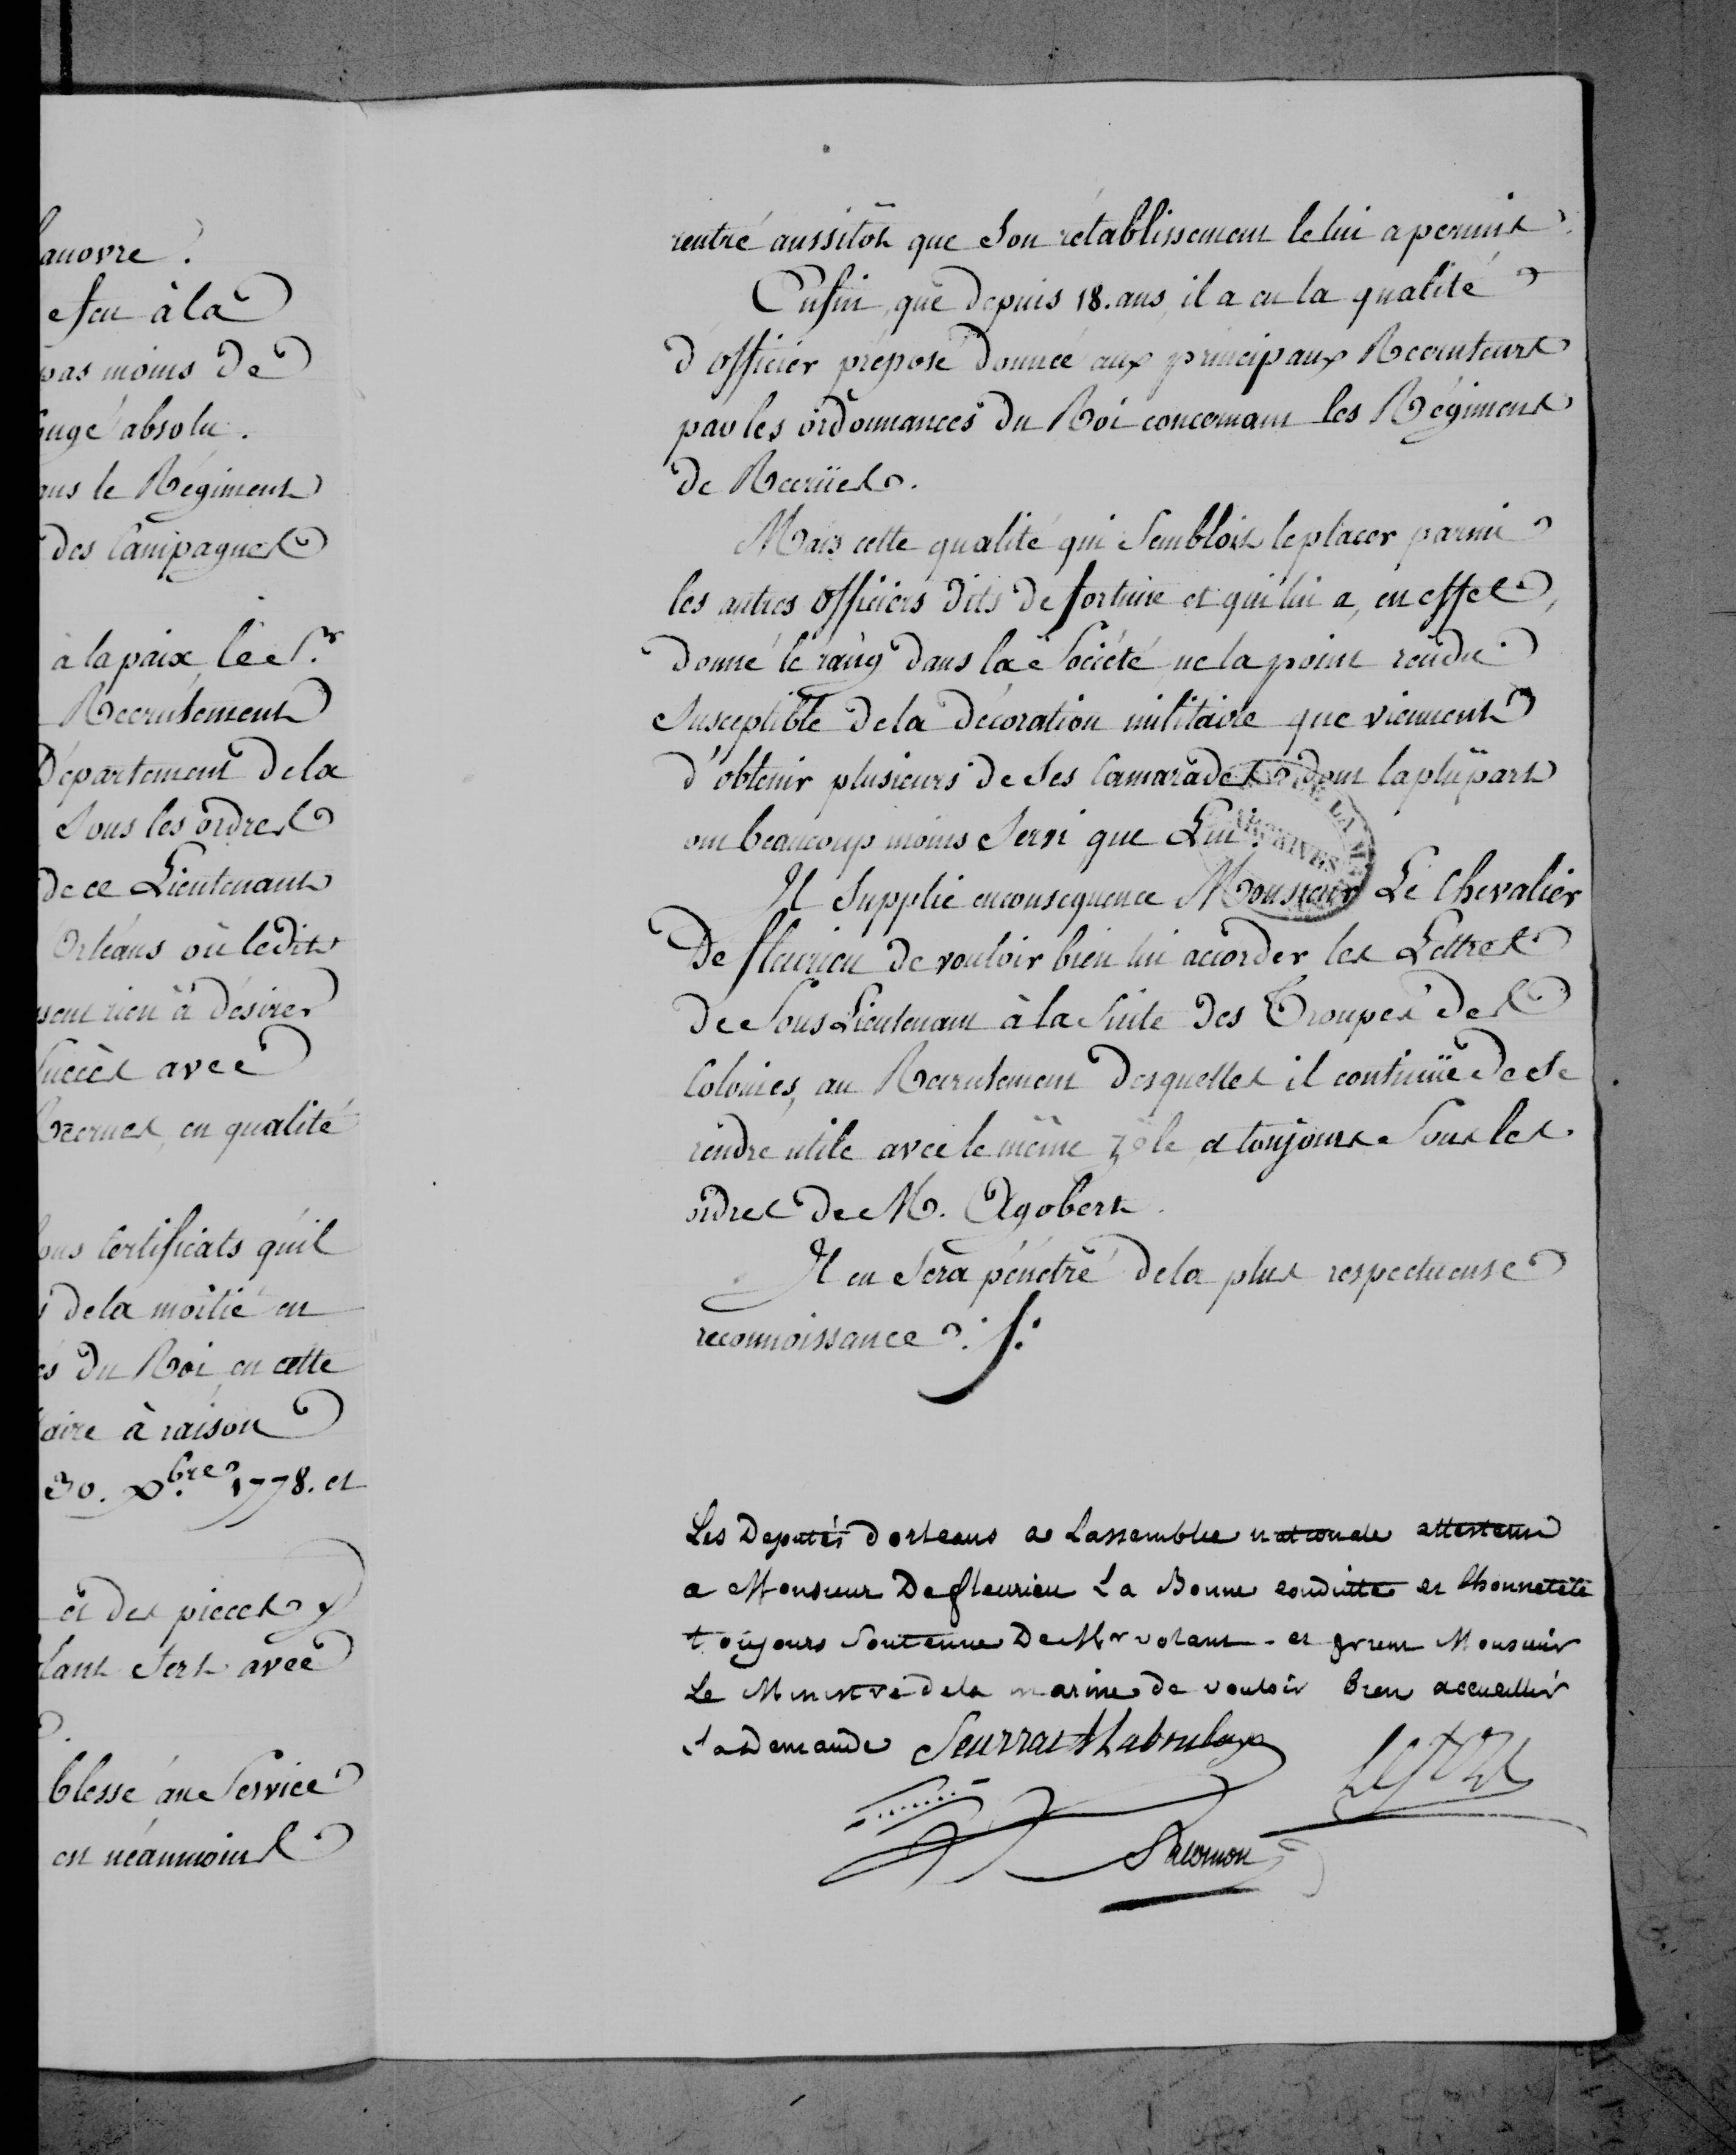 anovre.
e feu à la
pas moins de
ongé absolu.
ans le Régiment
des Campagnes
à la paix, le S.r
Recrutement
Département de la
Sous les ordres
de ce Lieutenant
Orléans où ledit
sent rien à désirer
Succès avec
Recrues, en qualité
ous Certificats qu'il
s de la moitié en
és du Roi en cette
aire à raison
30. Xbre. 1778. et
et des pieces y
lant Sert avec
blessé au Service
est néanmoins
rentré aussitôt que Son rétablissement le lui a permis.
Enfin, que depuis 18. ans, il a eu la qualité
d'officier préposé donnée aux principaux Recruteurs
par les ordonnances du Roi concernant les Régimens
de Recrües.
Mais cette qualité qui Sembloit le placer parmi
les autres officiers dits de fortune et qui lui a, en effet,
donné le rang dans la Société ne la point rendu
Susceptible de la décoration militaire que viennent
d'obtenir plusieurs de Ses Camarades dont la plûpart
ont beaucoup moins Servi que Lui.
ARCHIVES
Il Supplie en consequence Monsieur Le Chevalier
De fleurieu de vouloir bien lui accorder les Lettres
de Sous Lieutenant à la Suite des Troupes des
Colonies, au Recrutement desquelles il continüe de Se
rendre utile avec le même zèle et toujours Sous les
ordres de M. Agobert.
Il en Sera pénétré de la plus respectueuse
reconnoissance.
Les Deputés d'orleans a Lassemblée nationale attestent
a Monsieur De fleurieu La Bonne conduitte et Lhonneteté
toujours Soutenue De Mr volant. et prient Monsieur
Le Ministre de la marine de vouloir bien accueillir
Sa Demande Seurrat Delaboulaye
Salomon